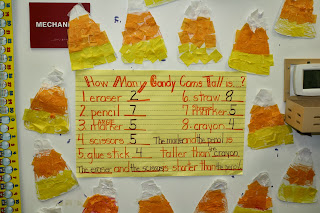 MECHANI
How Many Candy Corns Tall is...?
1. eraser 2 6. straw 8
2. pencil 7 7. marker 5
3. marker 5 8. crayon 4
4. scissors 5 The marker and the pencil is
5. glue stick 4 taller than the crayon.
The eraser and the scissors shorter than the pencil